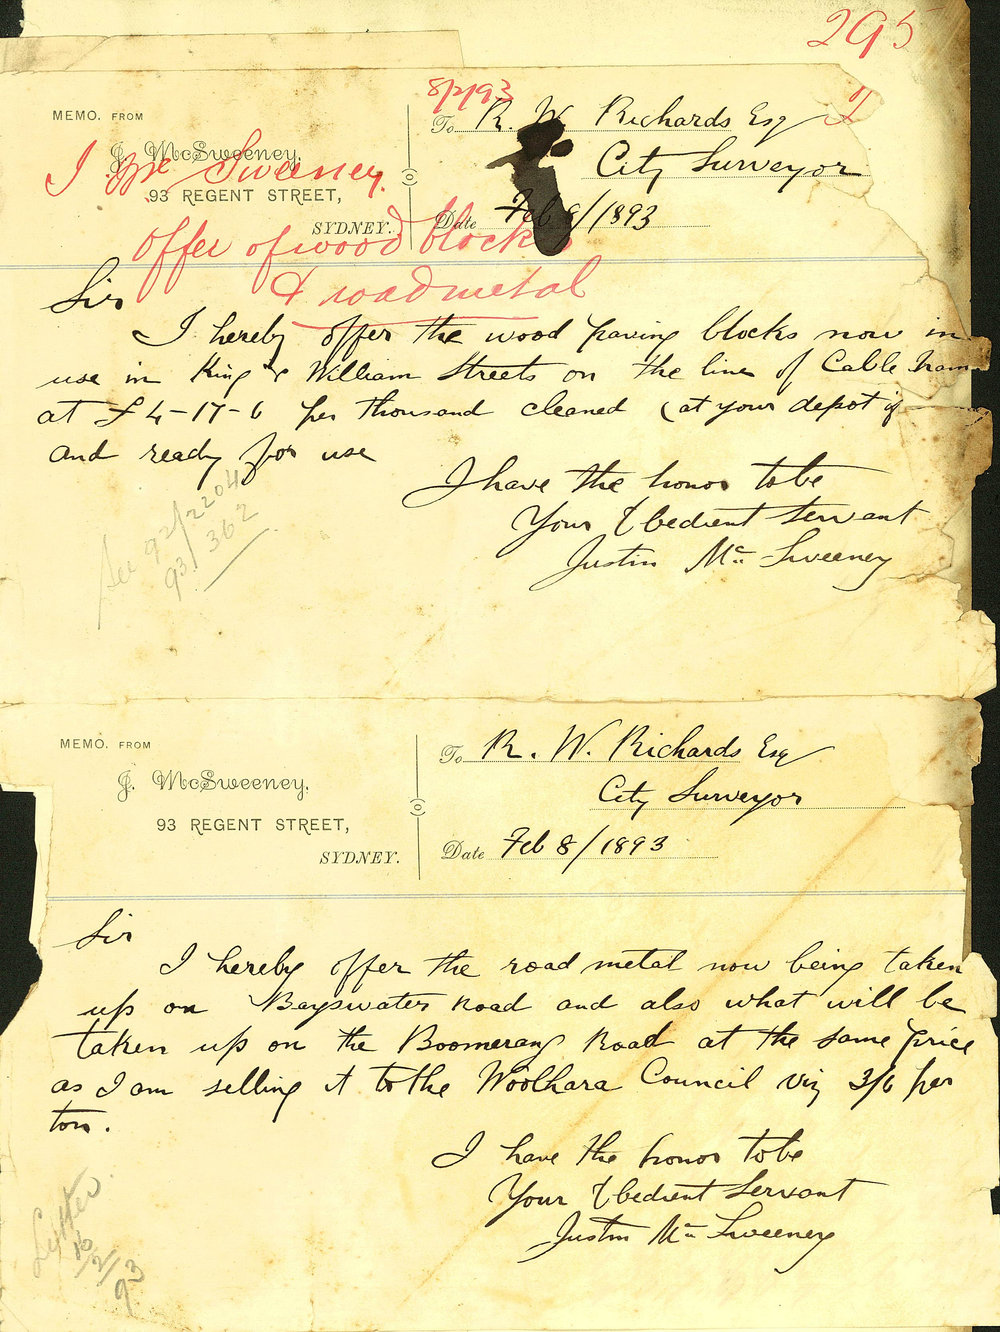 295
8/2/93
MEMO. FROM
To R. W. Richards Esq
J. McSweeney.
J McSweeney.
City Surveyor
93 REGENT STREET,
SYDNEY.
Date Feb 8/1893
offer of wood blocks
& road metal
Sir
I hereby offer the wood paving blocks now in
use in King & William Streets on the line of Cable Tram
at £4-17-6 per thousand cleaned (at your depot if
and ready for use
I have the honor to be
Your Obedient Servant
Justin Mc Sweeney
See 92/2204
93/362
MEMO. FROM
To R. W. Richards Esq
J. McSweeney.
City Surveyor
93 REGENT STREET,
SYDNEY.
Date Feb 8/1893
Sir
I hereby offer the road metal now being taken
up on Bayswater Road and also what will be
taken up on the Boomerang Road at the same price
as I am selling it to the Woolhara Council viz 3/6 per
ton.
I have the honor to be
Your Obedient Servant
Justin Mc Sweeney
Letter
16/2/93